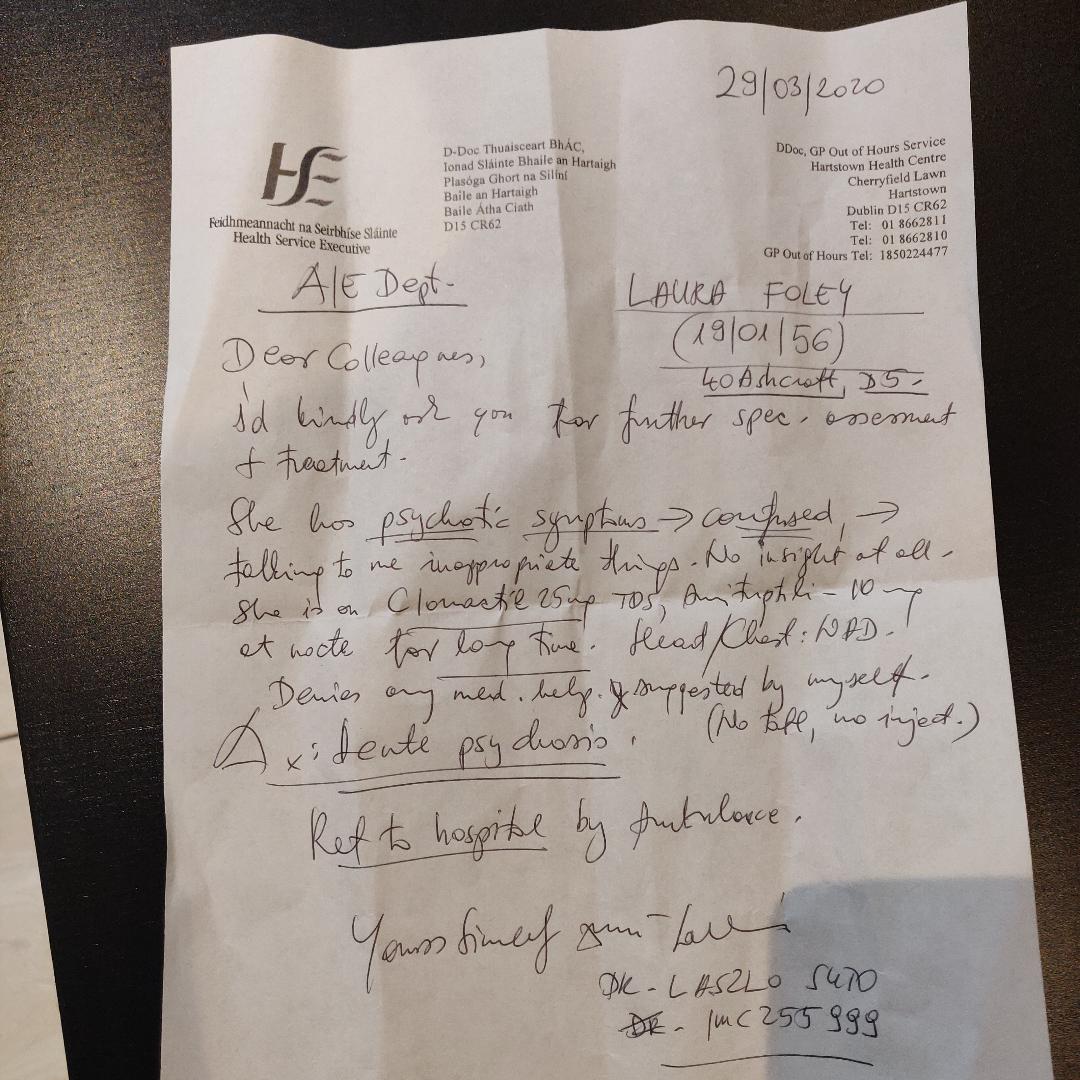 29/03/2020
HSE
Feidhmeannacht na Seirbhíse Sláinte
Health Service Executive
D-Doc Thuaisceart BhÁC,
Ionad Sláinte Bhaile an Hartaigh
Plasóga Ghort na Silíní
Baile an Hartaigh
Baile Átha Ciath
D15 CR62
DDoc, GP Out of Hours Service
Hartstown Health Centre
Cherryfield Lawn
Hartstown
Dublin D15 CR62
Tel: 01 8662811
Tel: 01 8662810
GP Out of Hours Tel: 1850224477
A/E Dept-
LAURA FOLEY
(19/01/56)
40 Ashcroft, D5.
Dear Colleagues,
I'd kindly ask you for further spec. assessment
& treatment.
She has psychotic symptoms → confused, →
talking to me inappropriate things. No insight at all.
She is on Clonactil 25mg TDS, Amitriptili- 10 mg
at nocte for long time. Head/Chest: NAD.
Denies any med. help. suggested by myself.
(No tabl, no inject.)
Δx: Acute psychosis.
Ref to hospital by Ambulance.
Yours sincerely
DR. LASZLO SUTO
IMC 255999